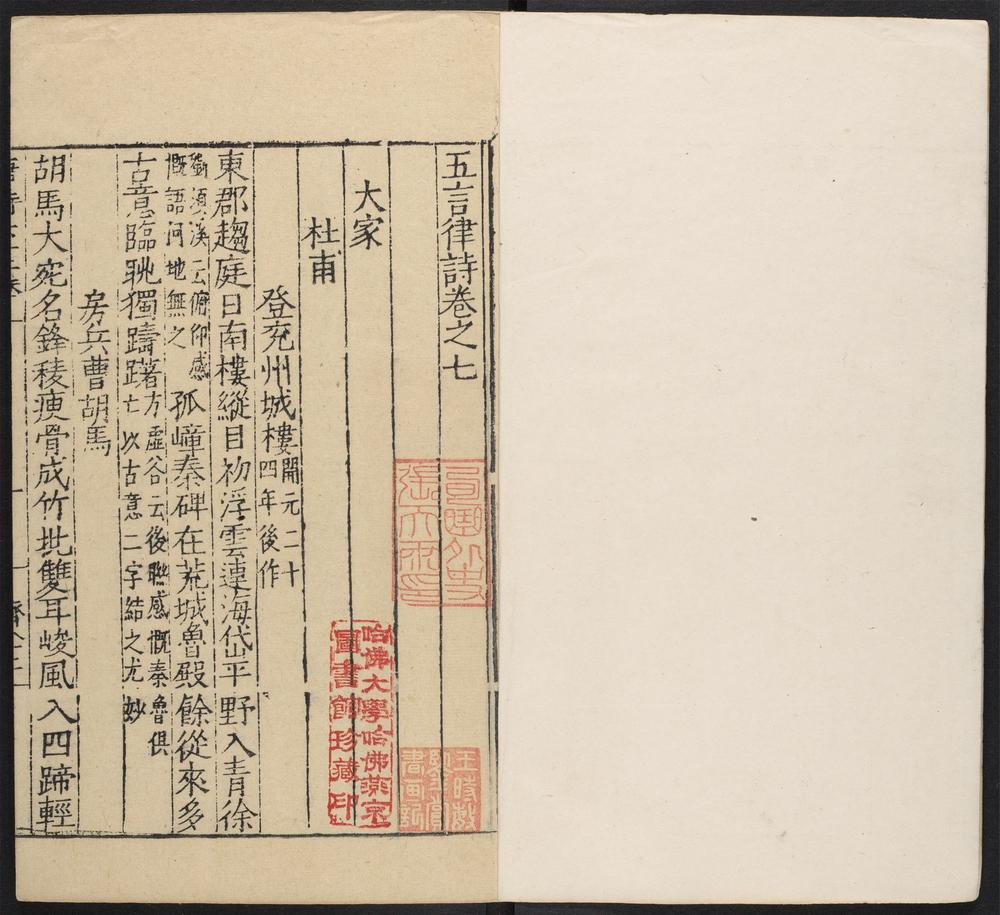 五言律詩卷之七
大家
杜甫
登兖州城樓開元二十
四年後作
東郡趨庭日南樓縱目初浮雲連海岱平野入青徐
劉須溪云俯仰感
慨語何地無之
孤嶂秦碑在荒城魯殿餘從來多
古意臨眺獨躊躇方虛谷云後聯感慨秦魯俱
亡以古意二字結之尤妙
房兵曹胡馬
胡馬大宛名鋒稜瘦骨成竹批雙耳峻風入四蹄輕
哈佛大學哈佛燕京
圖書館珍藏印
王時敏
書画記